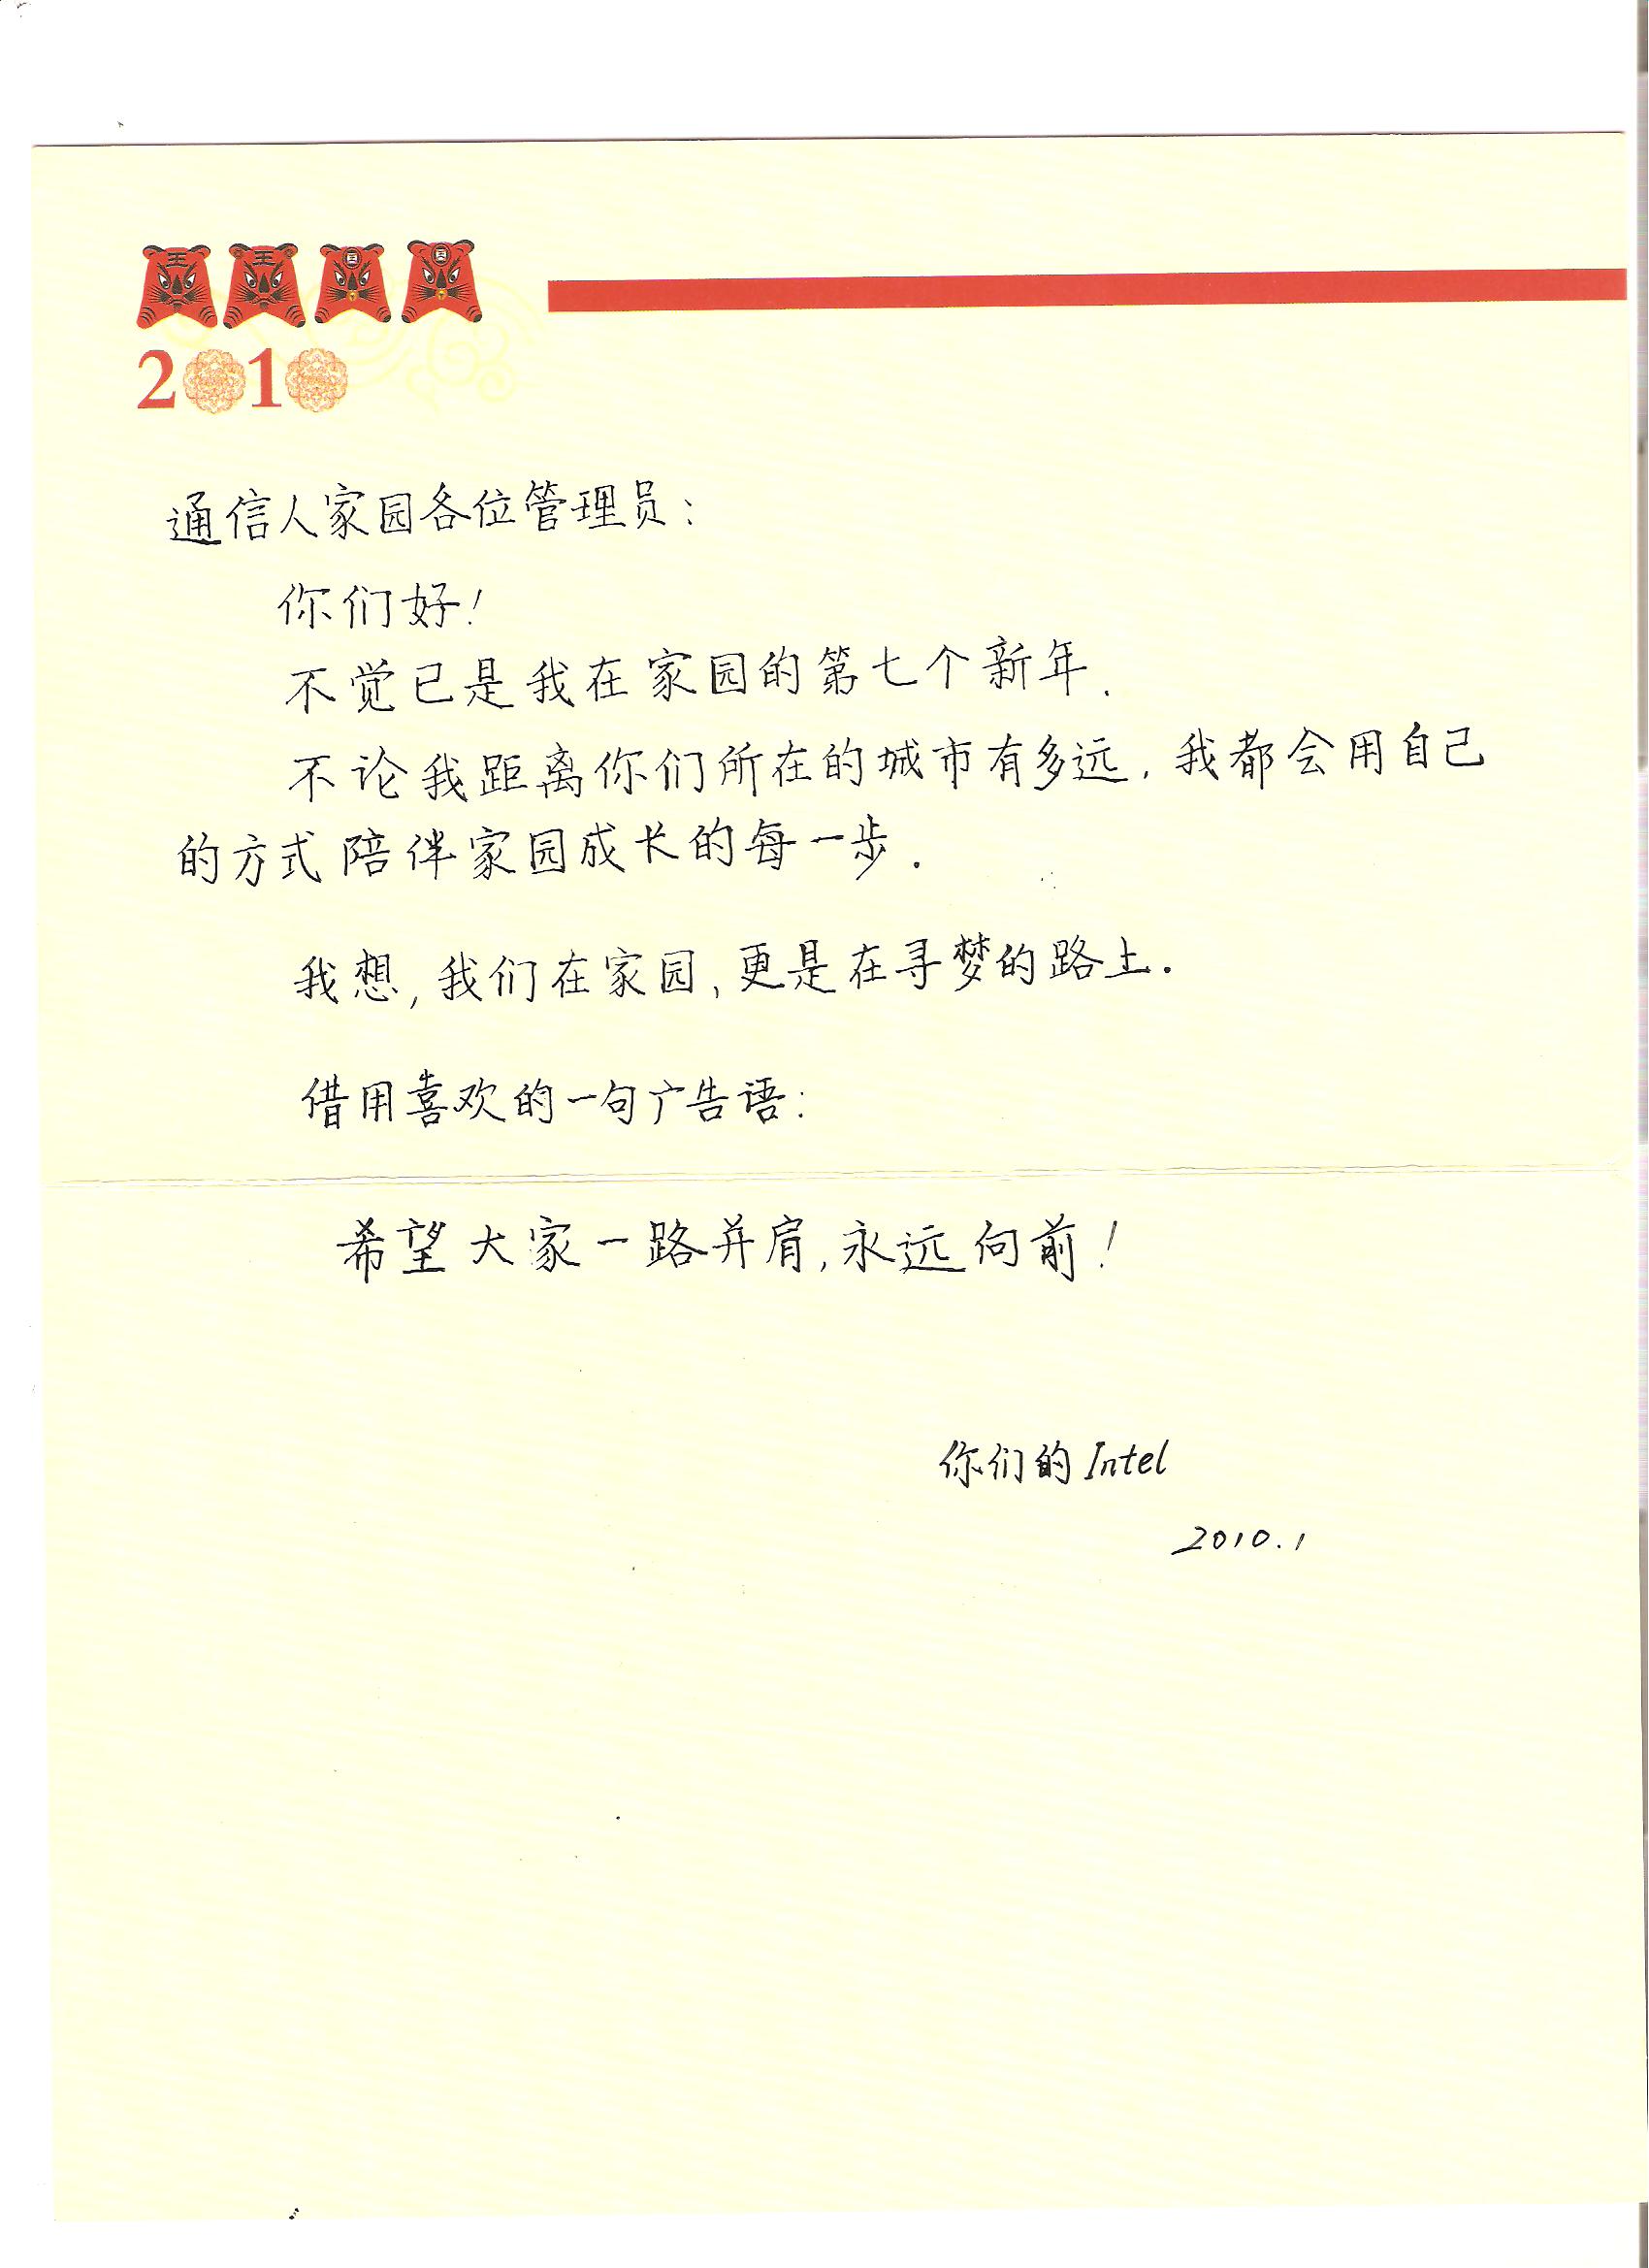 2010
通信人家园各位管理员:
你们好!
不觉已是我在家园的第七个新年.
不论我距离你们所在的城市有多远,我都会用自己
的方式陪伴家园成长的每一步.
我想,我们在家园,更是在寻梦的路上.
借用喜欢的一句广告语:
希望大家一路并肩,永远向前!
你们的Intel
2010.1